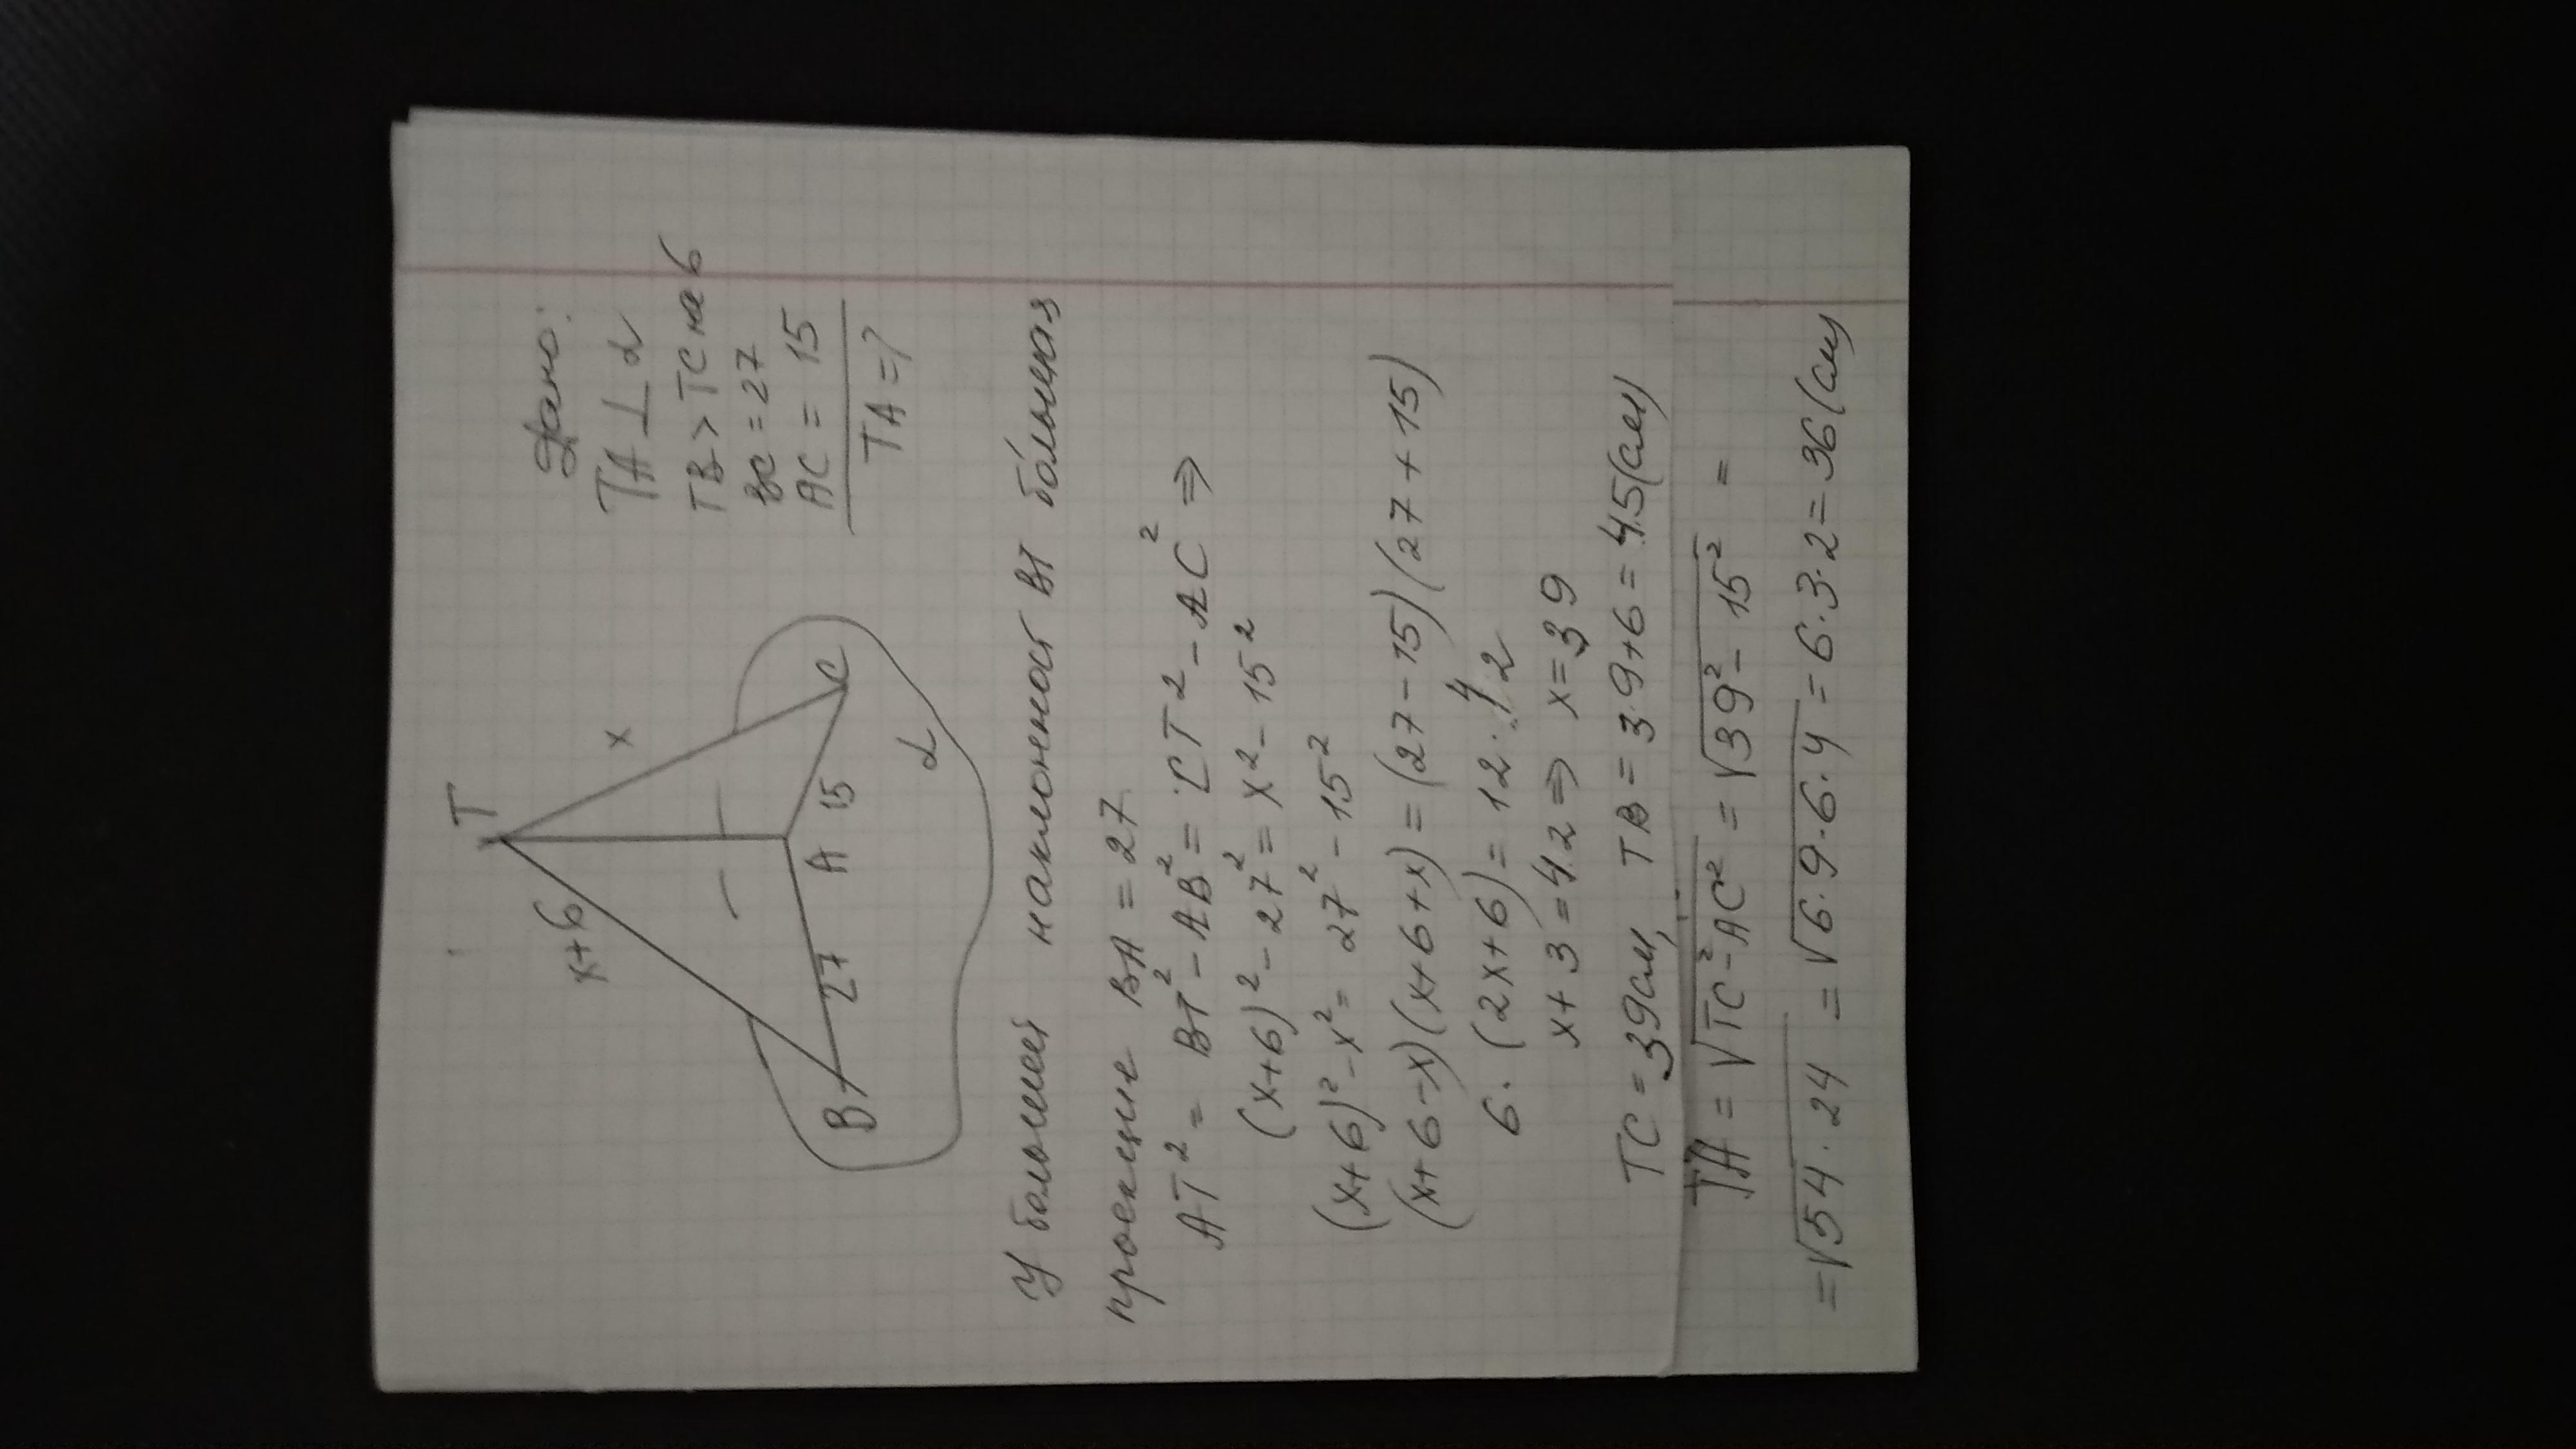 T
x+6
x
B
27
A
15
C
α
Дано:
TA ⊥ α
TB > TC на 6
BC = 27
AC = 15
TA = ?
У большей наклонной BT большая
проекция BA = 27
AT² = BT² - AB² = CT² - AC² ⇒
(x+6)² - 27² = x² - 15²
(x+6)² - x² = 27² - 15²
(x+6-x)(x+6+x) = (27-15)(27+15)
6·(2x+6) = 12·42
x+3 = 42 ⇒ x = 39
TC = 39см, TB = 39+6 = 45(см)
TA = √TC² - AC² = √39² - 15² =
= √54·24 = √6·9·6·4 = 6·3·2 = 36(см)